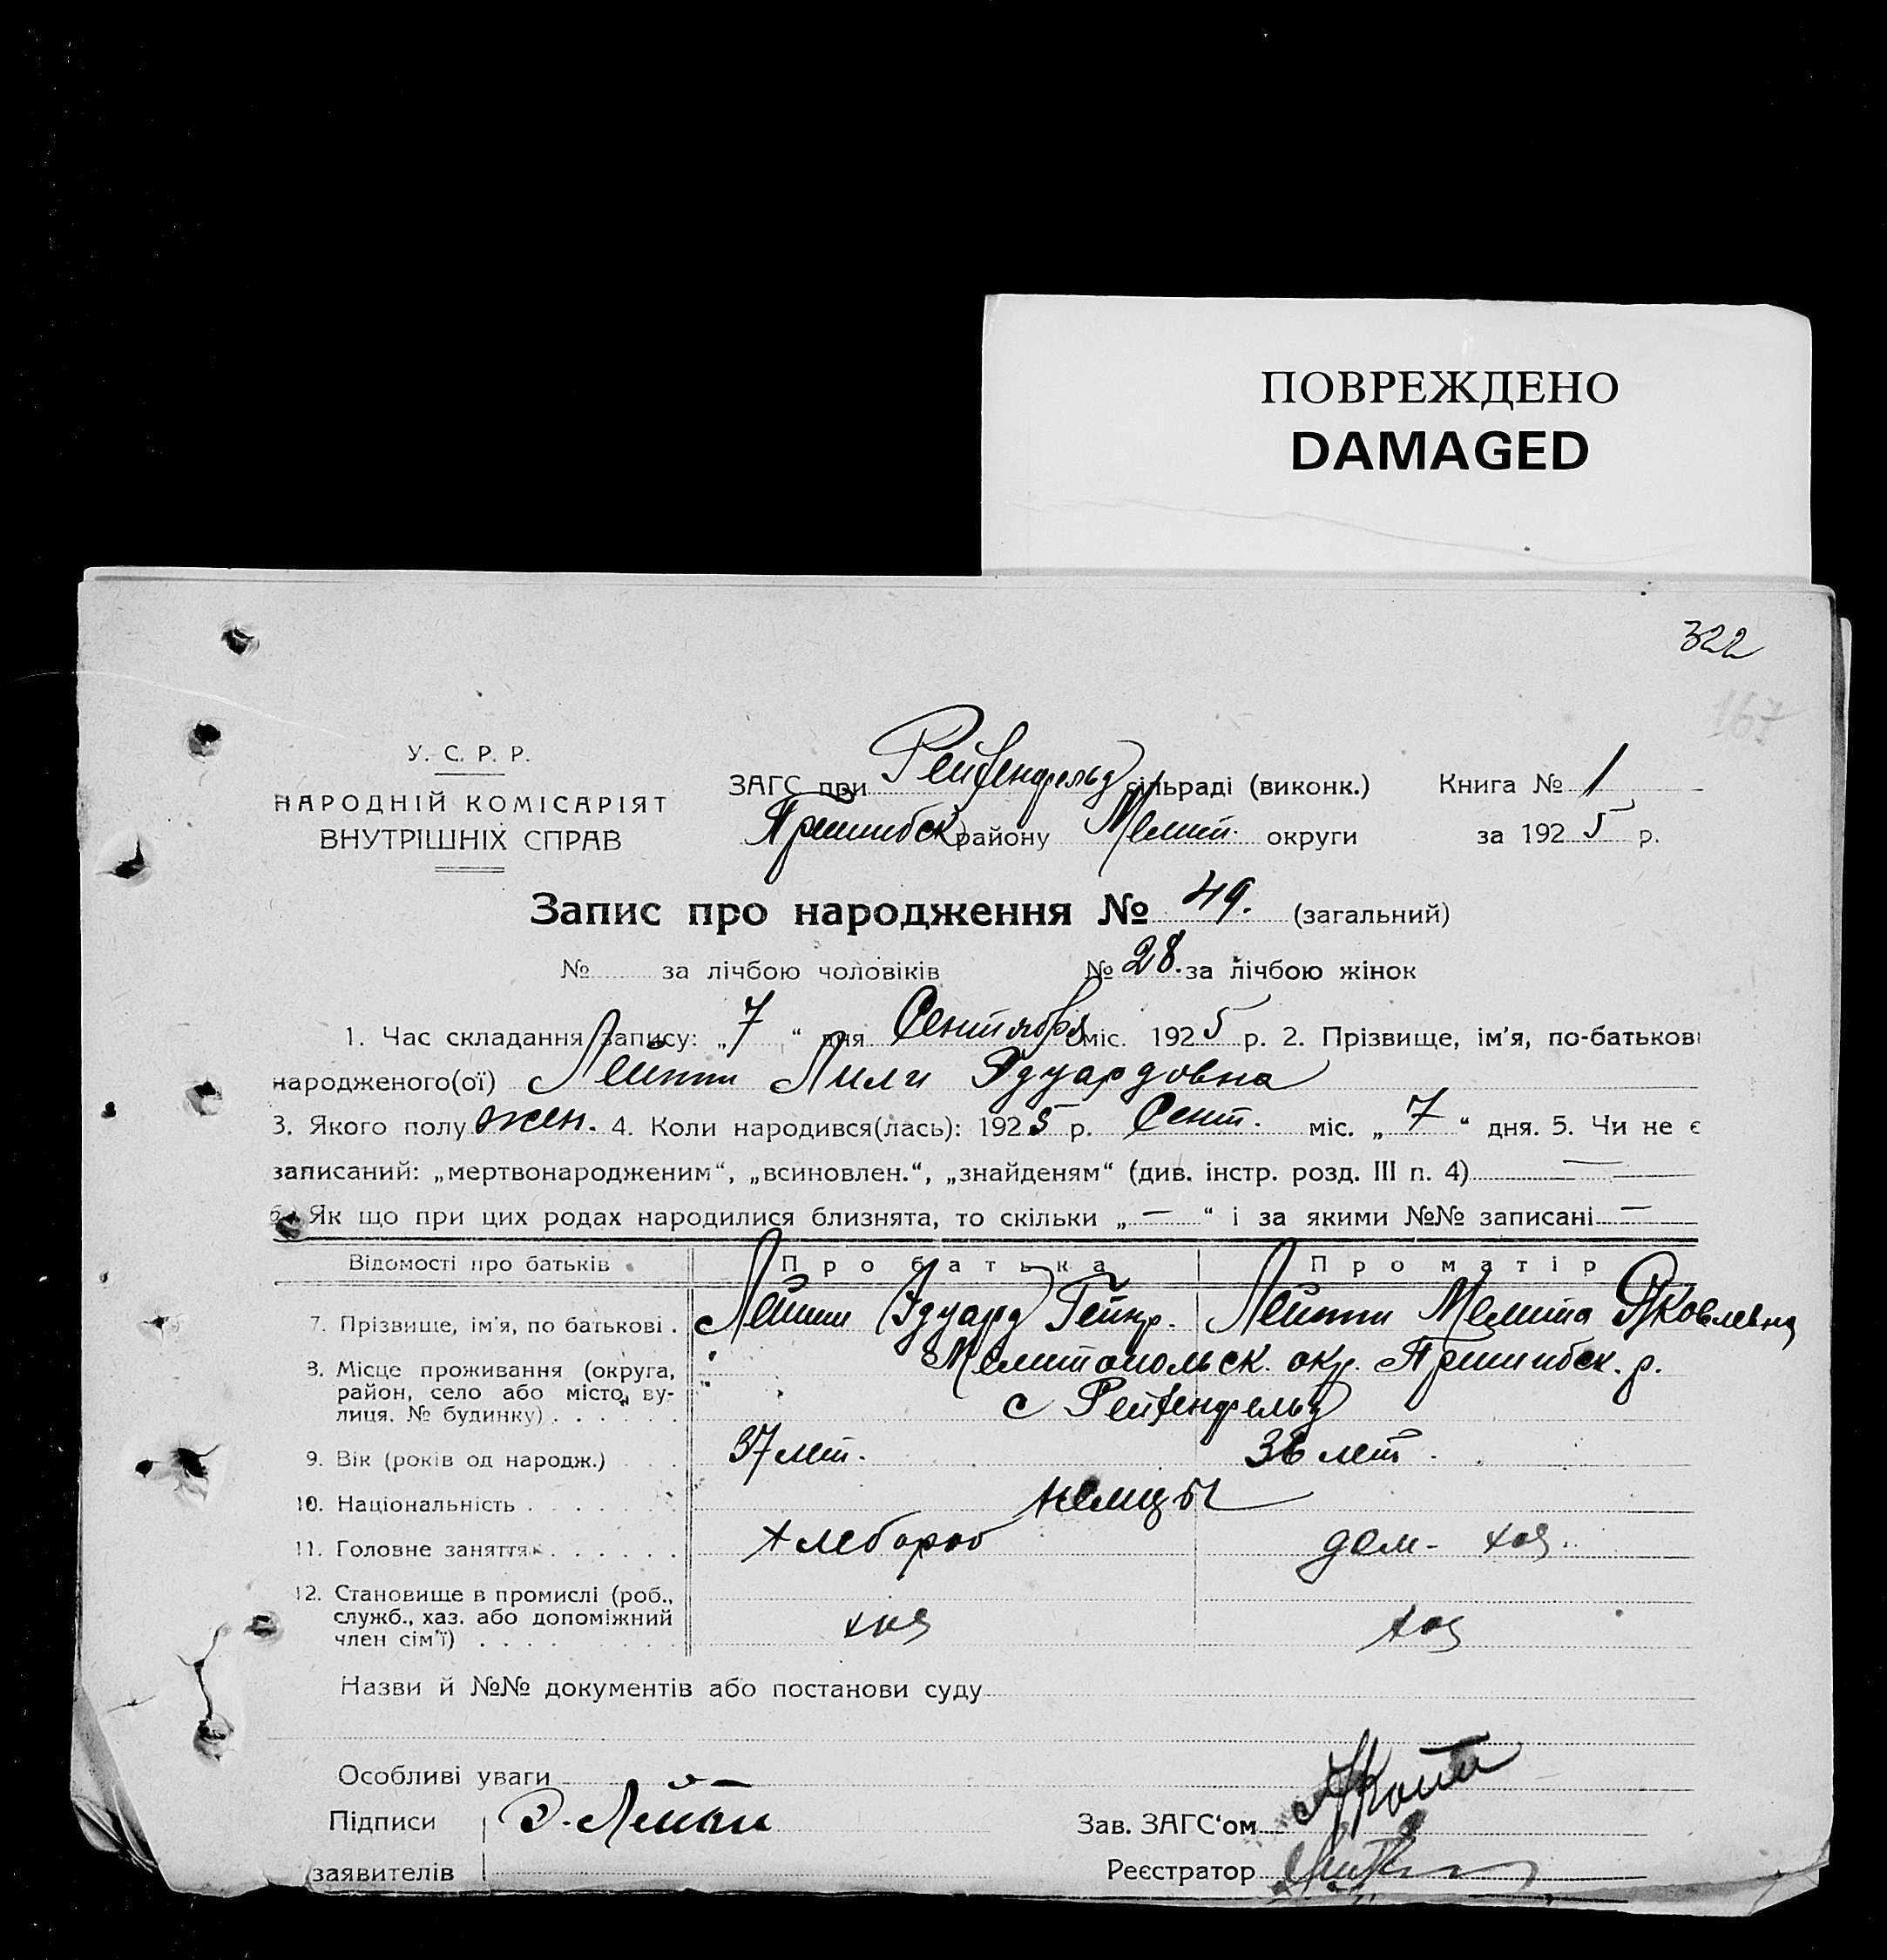 ПОВРЕЖДЕНО
DAMAGED
322
167
У. С. Р. Р.
НАРОДНІЙ КОМІСАРІЯТ
ВНУТРІШНІХ СПРАВ
ЗАГС при Рейхенфельд сільраді (виконк.) Книга № 1
Пришибск района району Мелит. округи за 1925 р.
Запис про народження № 49. (загальний)
№ за лічбою чоловіків № 28. за лічбою жінок
1. Час складання запису: „7“ дня Сентября міс. 1925 р. 2. Прізвище, ім'я, по-батькові
народженого(ої) Лейтти Лили Эдуардовна
3. Якого полу жен. 4. Коли народився(лась): 1925 р. Сент. міс. „7“ дня. 5. Чи не є
записаний: „мертвонародженим“, „всиновлен.“, „знайденям“ (див. інстр. розд. III п. 4) —
6. Як що при цих родах народилися близнята, то скільки „—“ і за якими №№ записані —
Відомості про батьків Про батька Про матір
7. Прізвище, ім'я, по батькові . Лейтти Эдуард Гейнр. Лейтти Мелита Яковлевна
8. Місце проживання (округа, район, село або місто, вулиця, № будинку) . . . . . Мелитопольск. окр. Пришибск. р.
с Рейхенфельд
9. Вік (років од народж.) . . . 37 лет. 36 лет.
10. Національність . . . . . немцы
11. Головне заняття . . . . . . хлебороб дом- хоз.
12. Становище в промислі (роб., служб., хаз. або допоміжний член сім'ї) . . . . хоз хоз
Назви й №№ документів або постанови суду
Особливі уваги
Підписи Э. Лейтти Зав. ЗАГС'ом
заявителів Реєстратор